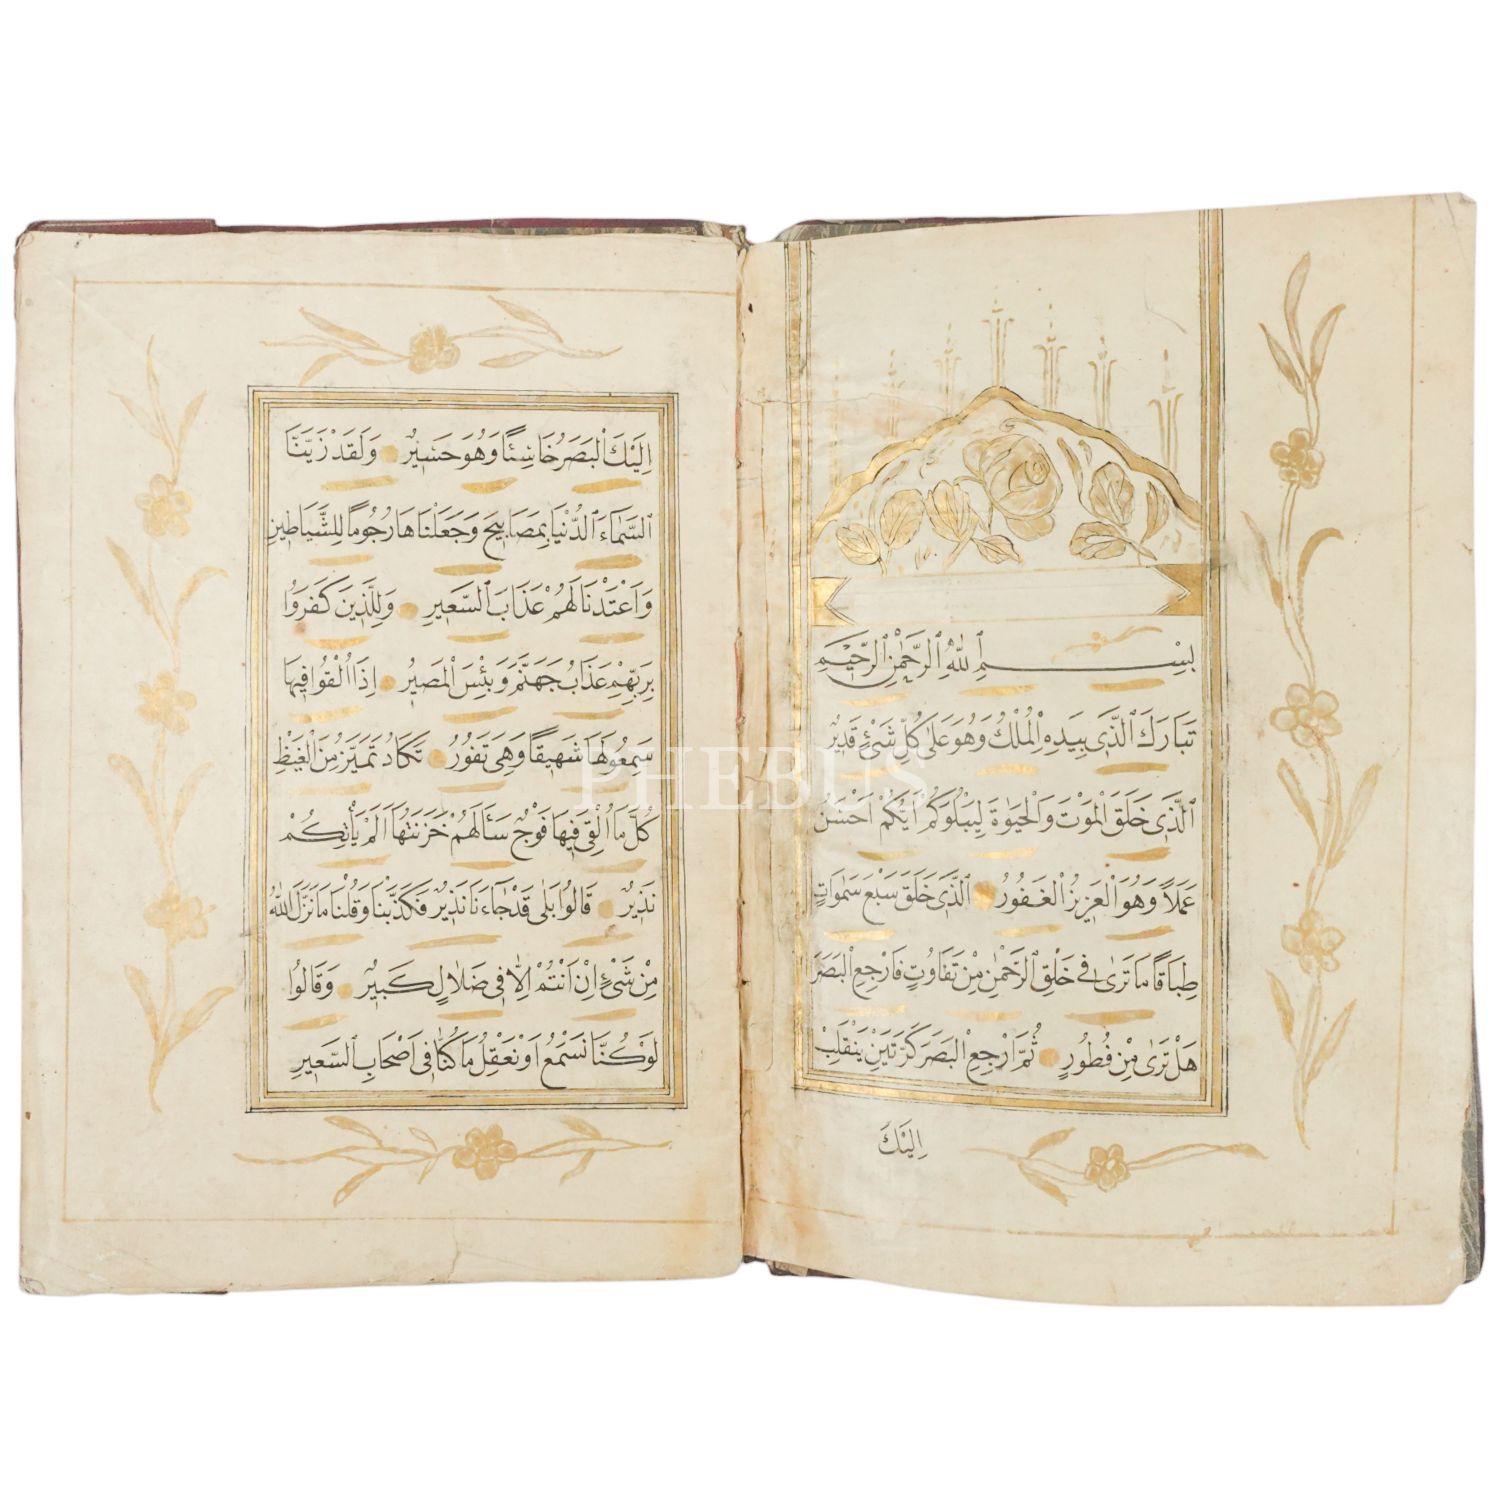 بِسْــــمِ اللّٰهِ الرَّحْمٰنِ الرَّحِيمِ
تَبَارَكَ الَّذٖى بِيَدِهِ الْمُلْكُ وَهُوَ عَلٰى كُلِّ شَىْءٍ قَدٖيرٌ
اَلَّذٖى خَلَقَ الْمَوْتَ وَالْحَيٰوةَ لِيَبْلُوَكُمْ اَيُّكُمْ اَحْسَنُ
عَمَلًا وَهُوَ الْعَزٖيزُ الْغَفُورُ اَلَّذٖى خَلَقَ سَبْعَ سَمٰوَاتٍ
طِبَاقًا مَا تَرٰى فٖى خَلْقِ الرَّحْمٰنِ مِنْ تَفَاوُتٍ فَارْجِعِ الْبَصَرَ
هَلْ تَرٰى مِنْ فُطُورٍ ثُمَّ ارْجِعِ الْبَصَرَ كَرَّتَيْنِ يَنْقَلِبْ
اِلَيْكَ
اِلَيْكَ الْبَصَرُ خَاسِئًا وَهُوَ حَسٖيرٌ وَلَقَدْ زَيَّنَّا
السَّمَاءَ الدُّنْيَا بِمَصَابٖيحَ وَجَعَلْنَاهَا رُجُومًا لِلشَّيَاطٖينِ
وَاَعْتَدْنَا لَهُمْ عَذَابَ السَّعٖيرِ وَلِلَّذٖينَ كَفَرُوا
بِرَبِّهِمْ عَذَابُ جَهَنَّمَ وَبِئْسَ الْمَصٖيرُ اِذَا اُلْقُوا فٖيهَا
سَمِعُوا لَهَا شَهٖيقًا وَهِىَ تَفُورُ تَكَادُ تَمَيَّزُ مِنَ الْغَيْظِ
كُلَّمَا اُلْقِىَ فٖيهَا فَوْجٌ سَاَلَهُمْ خَزَنَتُهَا اَلَمْ يَاْتِكُمْ
نَذٖيرٌ قَالُوا بَلٰى قَدْ جَاءَنَا نَذٖيرٌ فَكَذَّبْنَا وَقُلْنَا مَا نَزَّلَ اللّٰهُ
مِنْ شَىْءٍ اِنْ اَنْتُمْ اِلَّا فٖى ضَلَالٍ كَبٖيرٍ وَقَالُوا
لَوْ كُنَّا نَسْمَعُ اَوْ نَعْقِلُ مَا كُنَّا فٖى اَصْحَابِ السَّعٖيرِ
PHEBUS